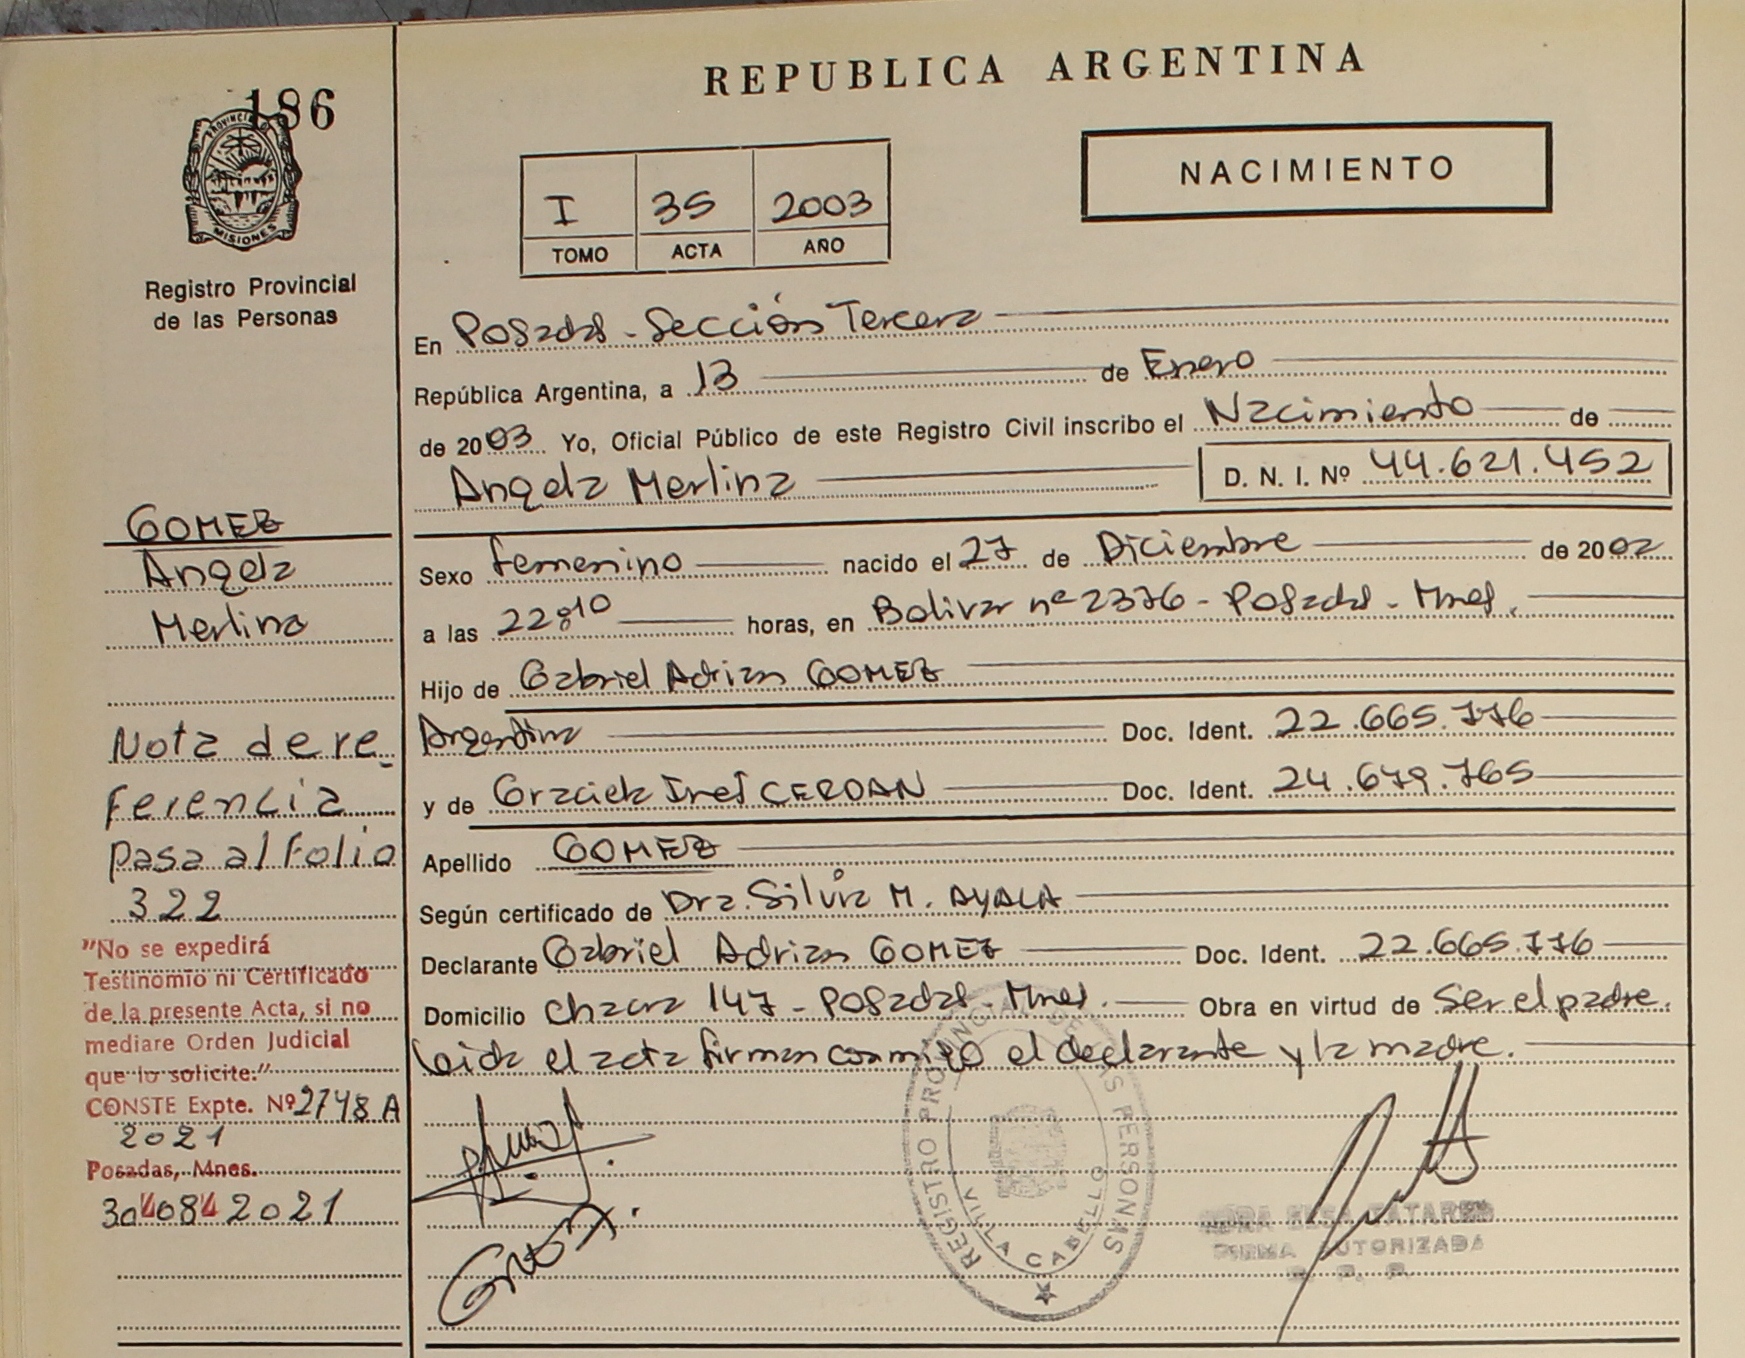 186
PROVINCIA DE
MISIONES
Registro Provincial
de las Personas
REPUBLICA ARGENTINA
NACIMIENTO
I 35 2003
TOMO ACTA AÑO
En Posadas - Sección Tercera
República Argentina, a 13 de Enero
de 2003 Yo, Oficial Público de este Registro Civil inscribo el Nacimiento de
Angela Merlina D. N. I. Nº 44.621.452
Sexo femenino nacido el 27 de Diciembre de 2002
a las 22:10 horas, en Bolivar nº 2376 - Posadas - Mnes.
Hijo de Gabriel Adrian GOMEZ
Argentina Doc. Ident. 22.665.776
y de Graciela Ines CERDAN Doc. Ident. 24.679.765
Apellido GOMEZ
Según certificado de Dra. Silvia M. AYALA
Declarante Gabriel Adrian GOMEZ Doc. Ident. 22.665.776
Domicilio Chacra 147 - Posadas - Mnes. Obra en virtud de Ser el padre.
Leida el acta firman conmigo el declarante y la madre.
GOMEZ
Angela
Merlina
Nota de re
ferencia
pasa al Folio
322
"No se expedirá
Testinomio ni Certificado
de la presente Acta, si no
mediare Orden Judicial
que lo solicite."
CONSTE Expte. Nº 2748 A
2021
Posadas, Mnes.
30/08/2021
REGISTRO PROVINCIAL DE LAS PERSONAS
VILLA CABELLO
FIRMA AUTORIZADA